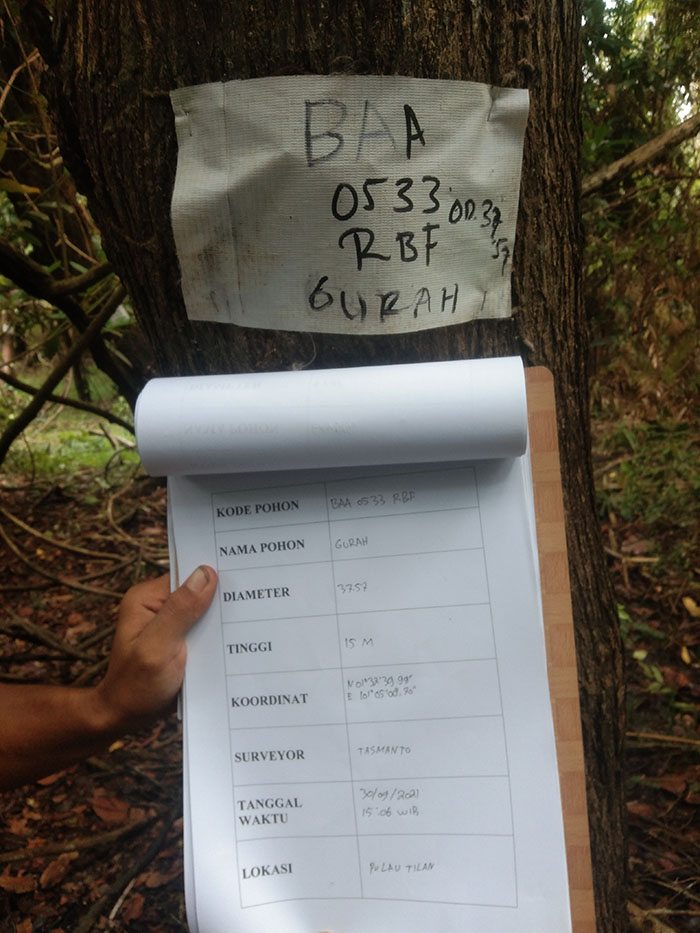 BAA
0533
OD.37
57
RBF
GURAH
KODE POHON BAA 0533 RBF
NAMA POHON GURAH
DIAMETER 3757
TINGGI 15 M
KOORDINAT N 01°32'39.99"
E 101°05'09.70"
SURVEYOR TASMANTO
TANGGAL WAKTU 30/09/2021
15:06 WIB
LOKASI PULAU TILAN